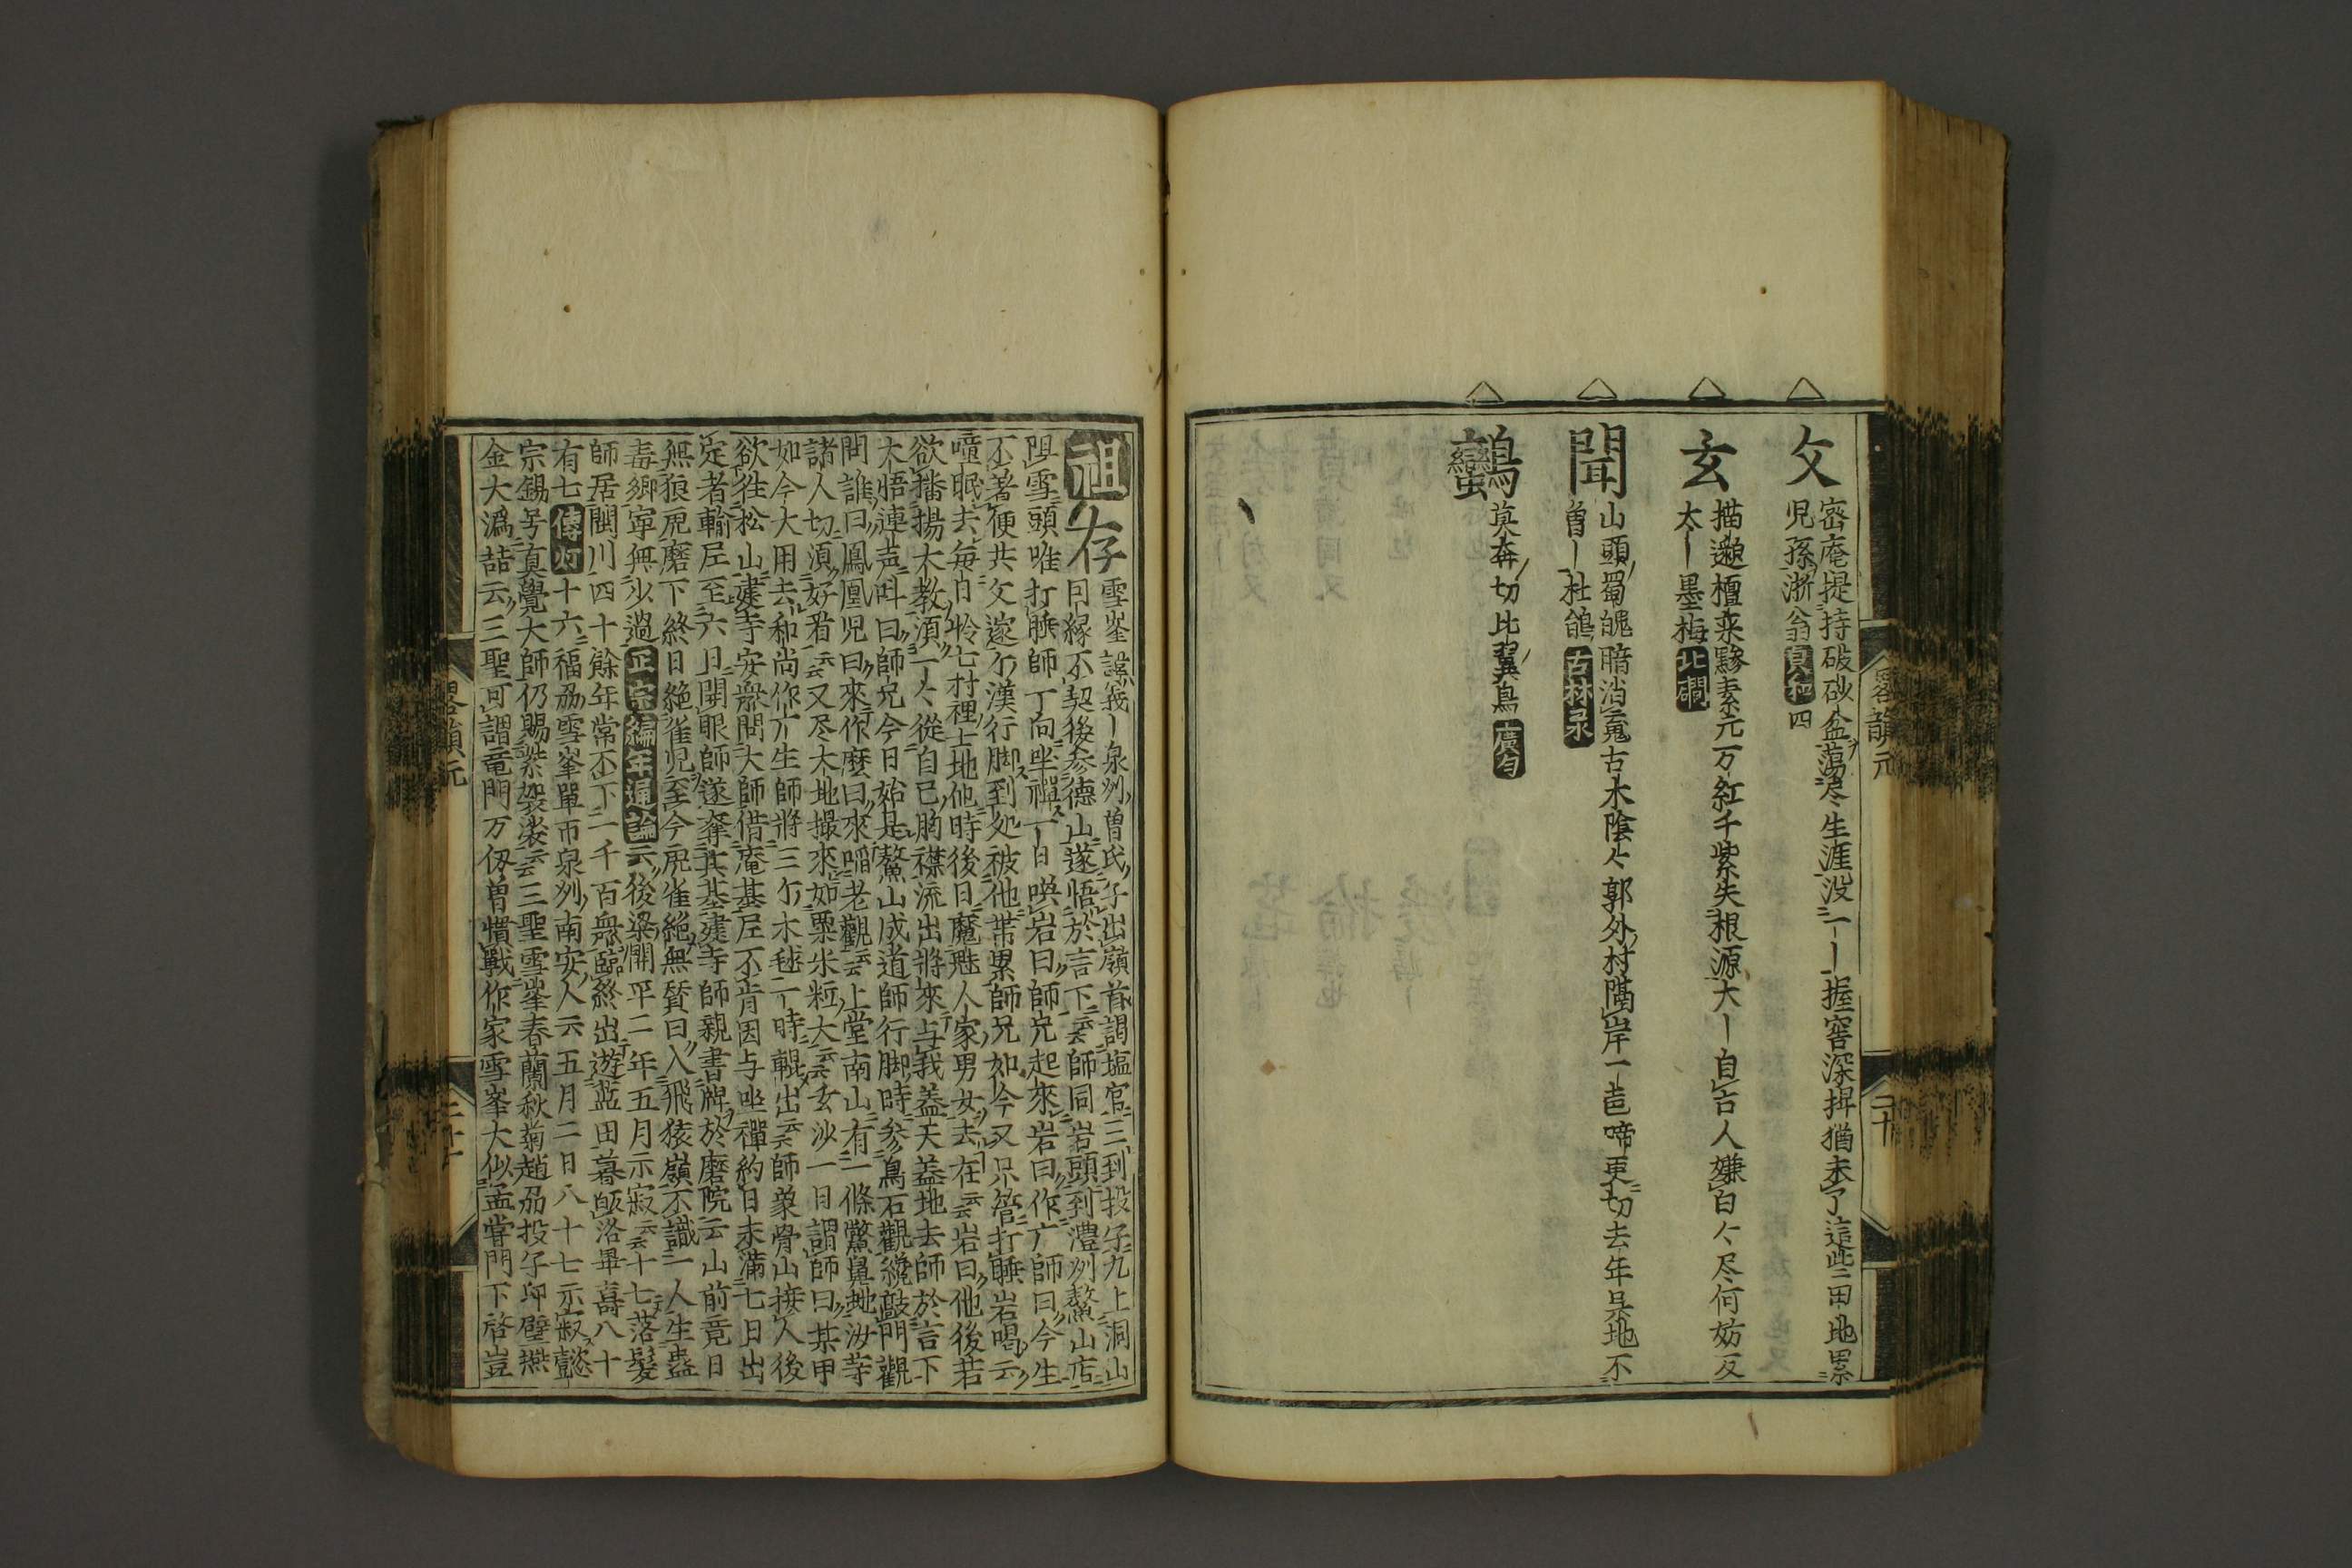 文 密庵提持破砂盆蕩尽生涯没一丨握窖深埋猶未了這些田地累
児孫浙翁貞和四
玄 描邈檀来黟素元万紅千紫失根源大丨自言人嫌白〻尽何妨反
太丨墨梅北磵
聞 山頭蜀魄暗消䰟古木陰〻郭外村隔岸一声啼更切去年呉地不
曽丨杜鵑古林录
鸞 莫奔切比翼鳥廣匀
畧韻元
二十
祖 存 雪峯諱義丨泉州曽氏子出嶺首謁塩官三到投子九上洞山
因縁不契後参德山遂悟於言下云云師同岩頭到澧州鰲山店
阻雪頭唯打睡師丁向坐禪一日喚岩曰師兄起來岩曰作广師曰今生
不著便共文遂个漢行脚到処被他帯累師兄如今又只管打睡岩喝云
噇眠去每日恰七村裡土地他時後日魔魅人家男女去在云云岩曰他後若
欲播揚大教湏一〻從自己胸襟流出將來与我葢天葢地去師於言下
大悟連声呌曰師兄今日始是鰲山成道師行脚時参鳥石觀纔敲門觀
問誰曰鳳凰児曰來作麼曰來㗖老觀云云上堂南山有一條鱉鼻虵汝等
諸人切湏好看云云又尽大地撮來如粟米粒大云云玄沙一日謂師曰某甲
如今大用去和尚作广生師將三个木毬一時輥出云云師象骨山接人後
欲徃松山建寺安衆問大師借庵基圧不肯因与坐禪約日未滿七日出
定者輸圧至六日開眼師遂奪其基建寺師親書牌於磨院云山前竟日
無狼虎磨下終日絶雀児至今虎雀絶無賛曰入飛猿嶺不識一人生蠱
毒郷寜無少過正宗編年通論云後梁開平二年五月示寂云云十七落髮
師居閩川四十餘年常不下一千百衆臨終出遊藍田暮皈洛畢壽八十
有七傳灯十六福刕雪峯單帀泉州南安人云五月二日八十七示寂懿
宗錫号真覺大師仍賜紫袈裟云云三聖雪峯春蘭秋菊趙刕投子卬壁燕
金大潙喆云三聖可謂竜門万仭曽慣戰作家雪峯大似孟嘗門下啓豈
畧韻元
二十一